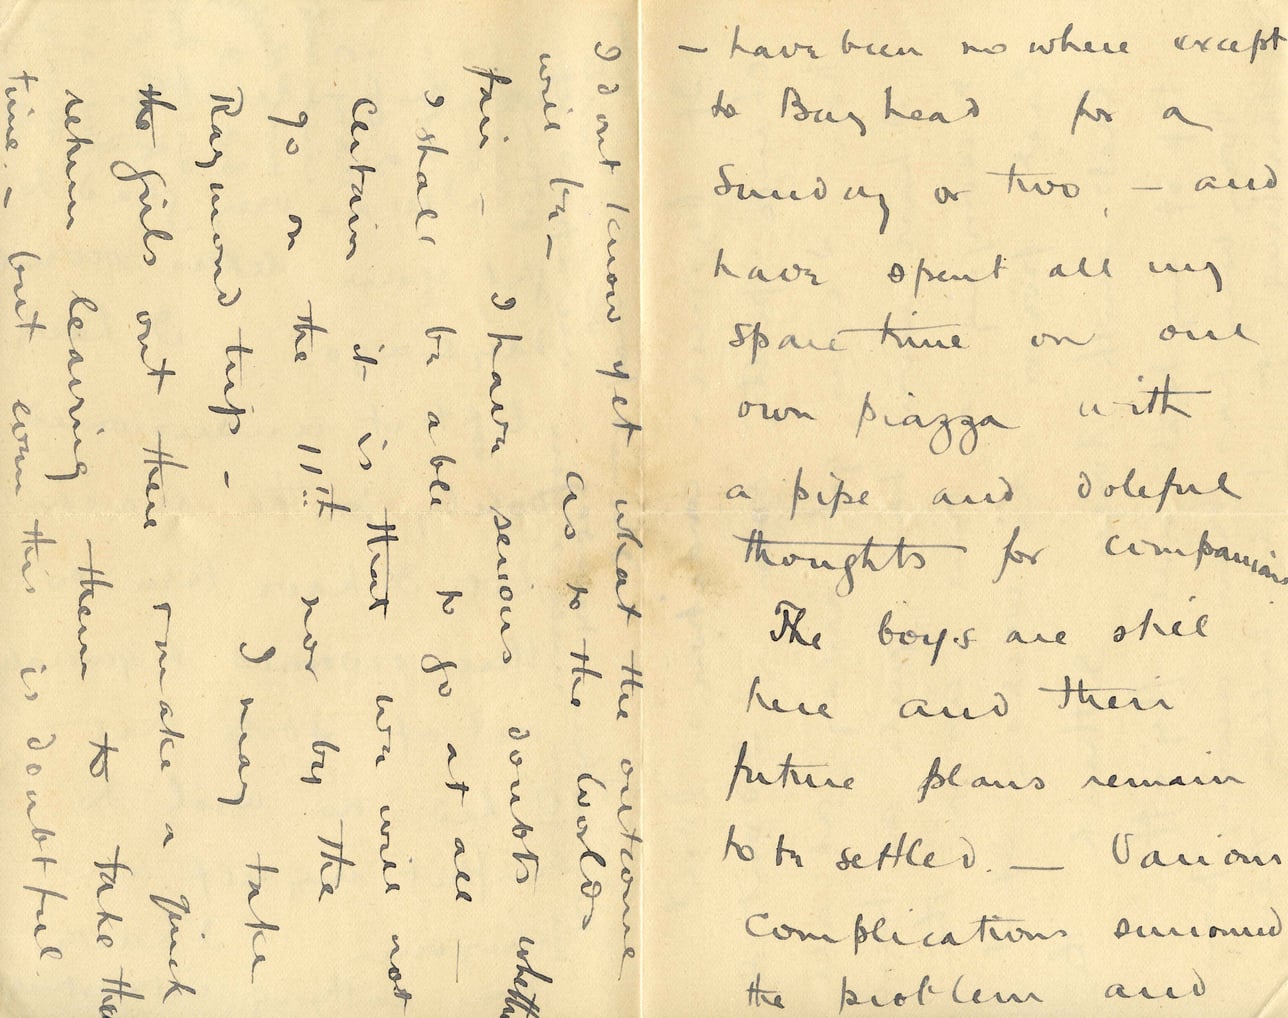 — have been no where except
to Bayhead for a
Sunday or two, — and
have spent all my
spare time on our
own piazza with
a pipe and doleful
thoughts for companions
The boys are still
here and their
future plans remain
to be settled. — Various
complications surround
the problem and
I dont know yet what the outcome
will be — As to the Worlds
fair — I have serious doubts whether
I shall be able to go at all —
Certain it is that we will not
go on the 11th nor by the
Raymond trip — I may take
the girls out there & make a quick
return leaving them to take their
time. — but even this is doubtful.